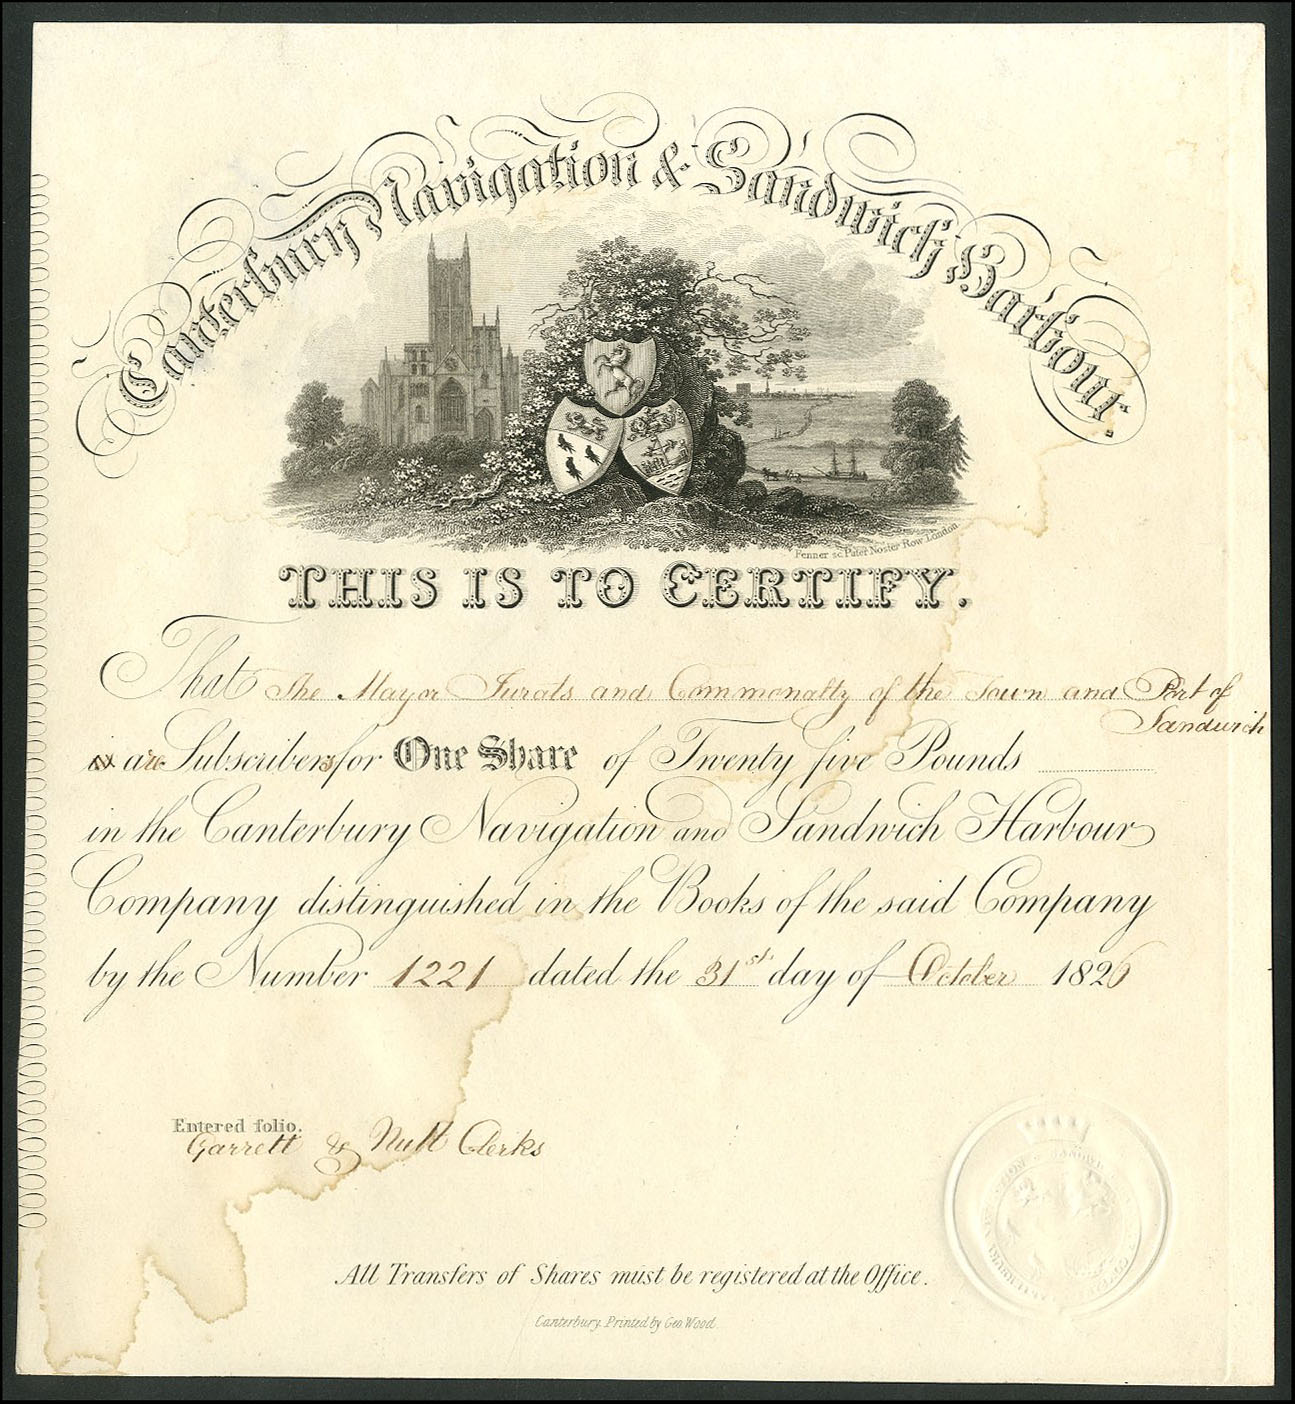 Canterbury Navigation & Sandwich Harbour.
Fenner sc. Pater Noster Row London
THIS IS TO CERTIFY.
That The Mayor Jurats and Commonalty of the Town and Port of
Sandwich
is are Subscribers for One Share of Twenty five Pounds
in the Canterbury Navigation and Sandwich Harbour
Company distinguished in the Books of the said Company
by the Number 1221 dated the 31st day of October 1826
Entered folio.
Garrett & Nutt Clerks
All Transfers of Shares must be registered at the Office.
Canterbury. Printed by Geo. Wood.